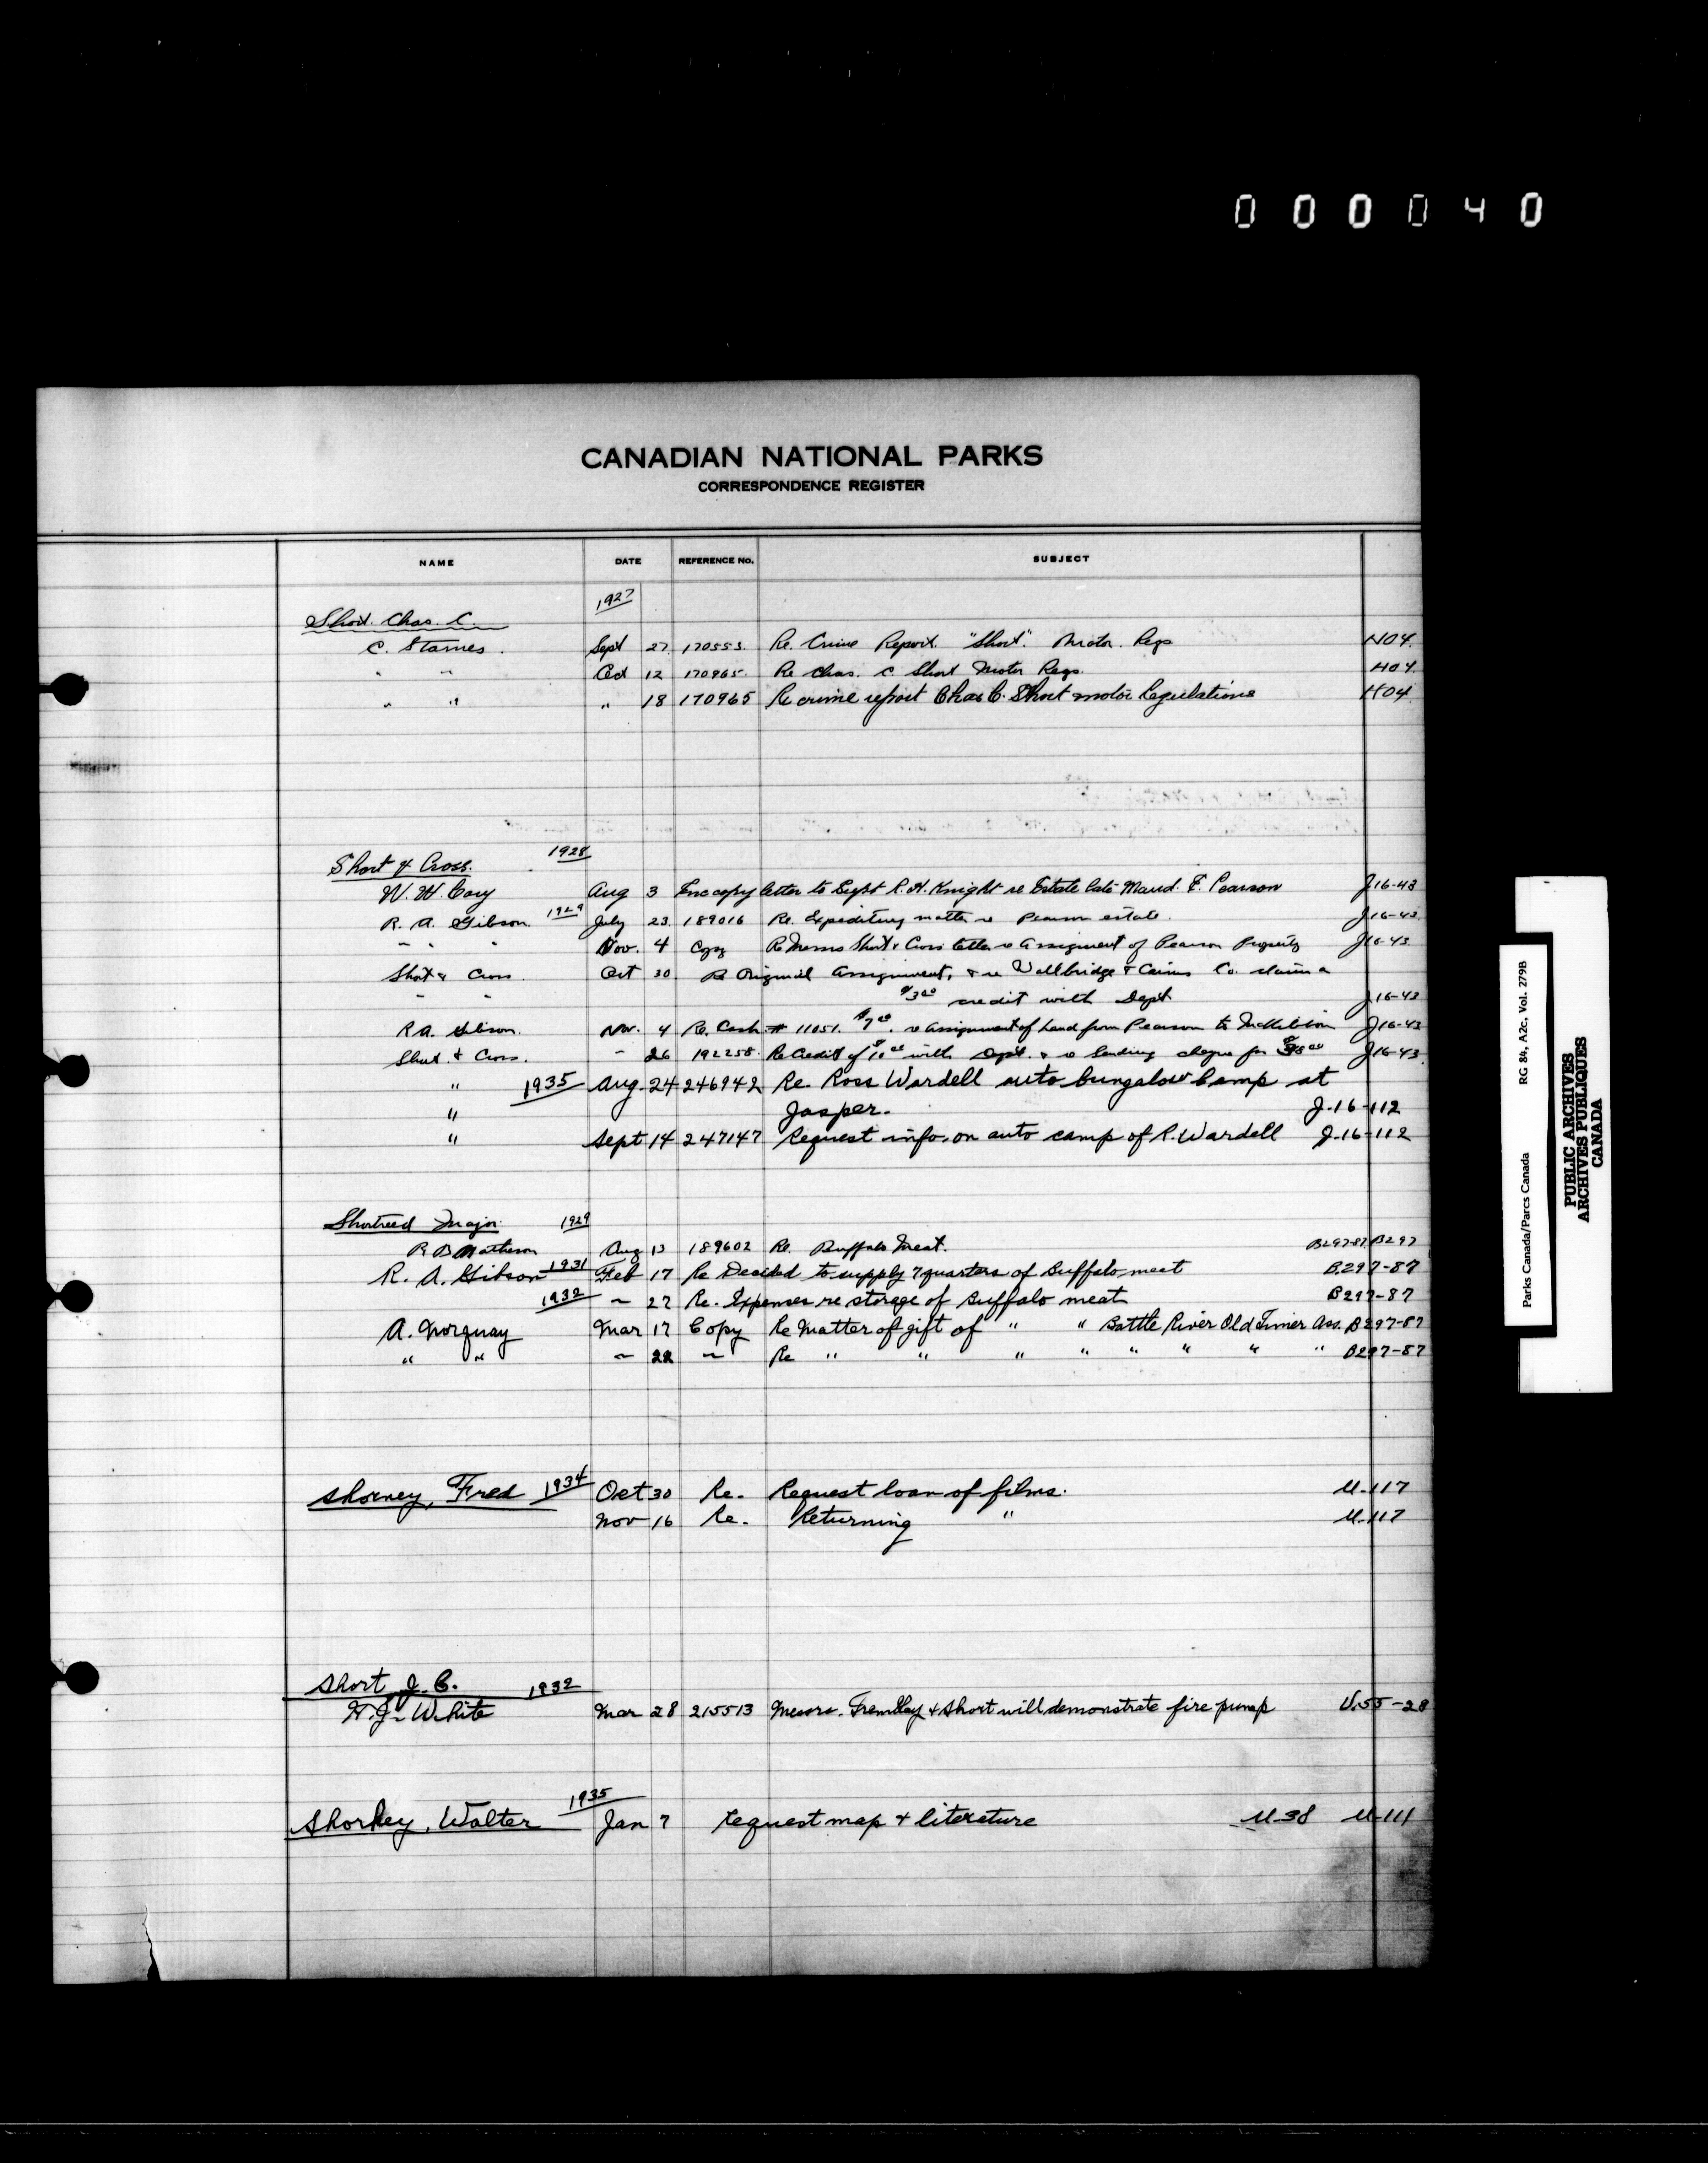 000040
CANADIAN NATIONAL PARKS
CORRESPONDENCE REGISTER
NAME DATE REFERENCE NO. SUBJECT
1927
Short. Chas. C.
C. Starnes. Sept 27 170553. Re. Crime Report. "Short". Motor. Regs H04.
" " Oct 12 170965. Re Chas. C Short Motor Regs. H04.
" " " 18 170965 Re crime report Chas C. Short motor Regulations H04
Short & Cross. 1928
W. W. Cory Aug 3 Enc copy letter to Supt R. H. Knight re Estate late Maud. E. Pearson J16-43
R. A. Gibson 1929 July 23 189016 Re. Expediting matter re Pearson estate. J16-43.
" " " Nov. 4 Copy Re Messrs Short & Cross letter re Assignment of Pearson Property J16-43
Short & Cross Oct 30. Re Original Assignment, & re Wallbridge & Cairns Co. claim a
" " $3.00 credit with Dept J16-43
R A. Gibson. Nov. 4 Re. Cash # 11051. $7.00. re assignment of land from Pearson to J16-43
Short & Cross. " 26 192258. Re Credit of $10.00 with Dept. & re sending cheque for J16-43.
" 1935 Aug. 24 246942 Re. Ross Wardell auto bungalow Camp at
" Jasper. J.16-112
" Sept 14 247147 Request info. on auto camp of R. Wardell J.16-112
Shortreed Major. 1929
R B Matheson Aug 13 189602 Re. Buffalo Meat. B297-87 B297
R. A. Gibson 1931 Feb 17 Re Decided to supply 7 quarters of Buffalo meat B.297-87
1932 " 27 Re. Expenses re storage of Buffalo meat B297-87
A. Norquay Mar 17 Copy Re Matter of gift of " " Battle River Old Timer Ass. B297-87
" " " 22 " Re " " " " " " " " B297-87
Shorney, Fred 1934 Oct 30 Re. Request loan of films. U-117
Nov 16 Re. Returning " U-117
Short J. C. 1932
White Mar 28 215513 Messrs. Tremblay & Short will demonstrate fire pump U.55-28
1935
Shorkey, Walter Jan 7 Request map & literature U-38 U-111
Parks Canada/Parcs Canada RG 84, A2c, Vol. 2798
PUBLIC ARCHIVES
ARCHIVES PUBLIQUES
CANADA